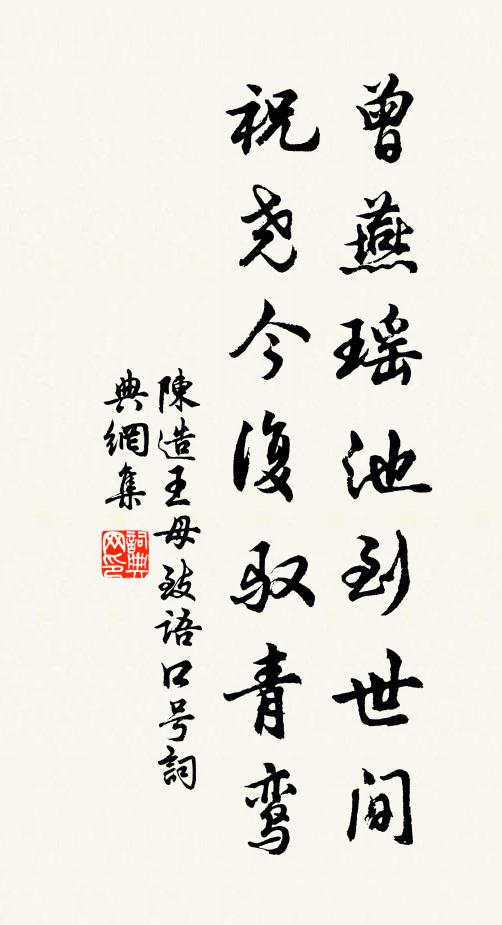 曾燕瑶池到世间
祝尧今复驭青鸾
陳造王母致语口号詞
典網集
詞典网印